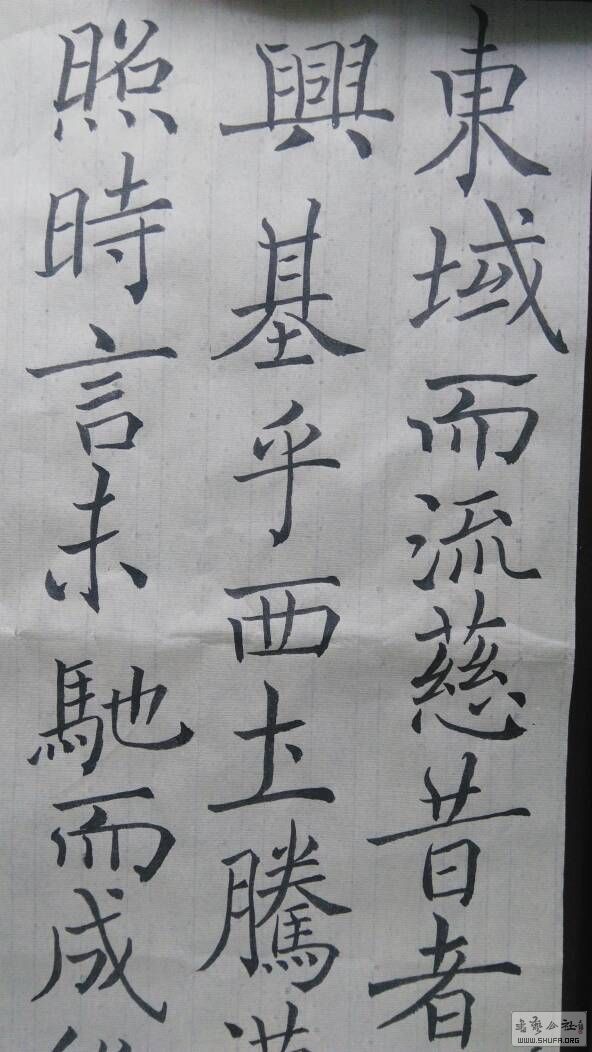 東域而流慈昔者
興基乎西圡騰
照時言未馳而成
書艺公社
WWW.SHUFA.ORG